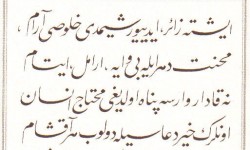 ایشته زائر، ایدییور شیمدی خلوصی آرام ،
محنت دهرایله بی وایه ، ارامل ، ایتام
نه قادار وارسه پناه اولدیغی محتاج انسان
اونلرک خیر دعاسیله دولوب هر آقشام